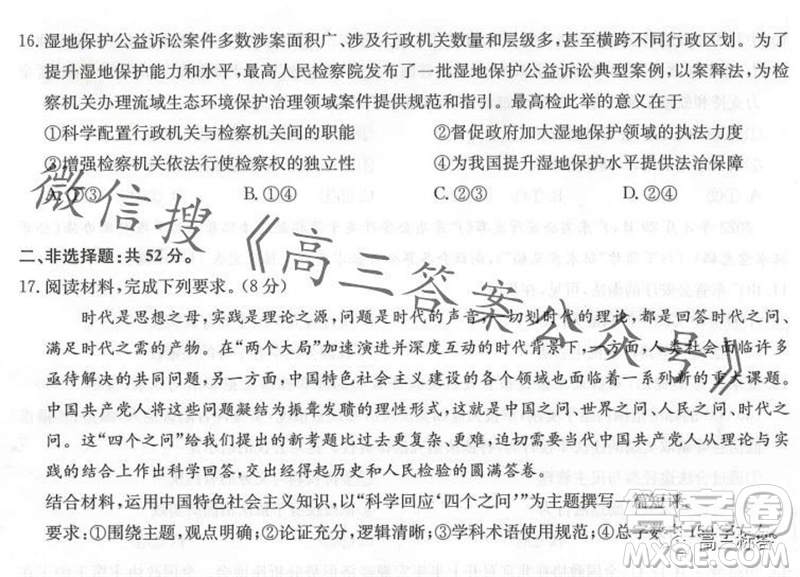 16.湿地保护公益诉讼案件多数涉案面积广、涉及行政机关数量和层级多,甚至横跨不同行政区划。为了
提升湿地保护能力和水平,最高人民检察院发布了一批湿地保护公益诉讼典型案例,以案释法,为检
察机关办理流域生态环境保护治理领域案件提供规范和指引。最高检此举的意义在于
①科学配置行政机关与检察机关间的职能 ②督促政府加大湿地保护领域的执法力度
③增强检察机关依法行使检察权的独立性 ④为我国提升湿地保护水平提供法治保障
A.①③ B.①④ C.②③ D.②④
二、非选择题:共52分。
17.阅读材料,完成下列要求。(8分)
时代是思想之母,实践是理论之源,问题是时代的声音,一切划时代的理论,都是回答时代之问、
满足时代之需的产物。在“两个大局”加速演进并深度互动的时代背景下,一方面,人类社会面临许多
亟待解决的共同问题,另一方面,中国特色社会主义建设的各个领域也有一系列新的重大课题。
中国共产党人将这些问题凝结为振聋发聩的理性形式,这就是中国之问、世界之问、人民之问、时代之
问。这“四个之问”给我们提出的新考题比过去更复杂、更难,迫切需要当代中国共产党人从理论与实
践的结合上作出科学回答,交出经得起历史和人民检验的圆满答卷。
结合材料,运用中国特色社会主义知识,以“科学回应‘四个之问’”为主题撰写一篇短评。
要求:①围绕主题,观点明确;②论证充分,逻辑清晰;③学科术语使用规范;④总字数
微信搜《高三答案公众号》
答案圈
MXQE.COM